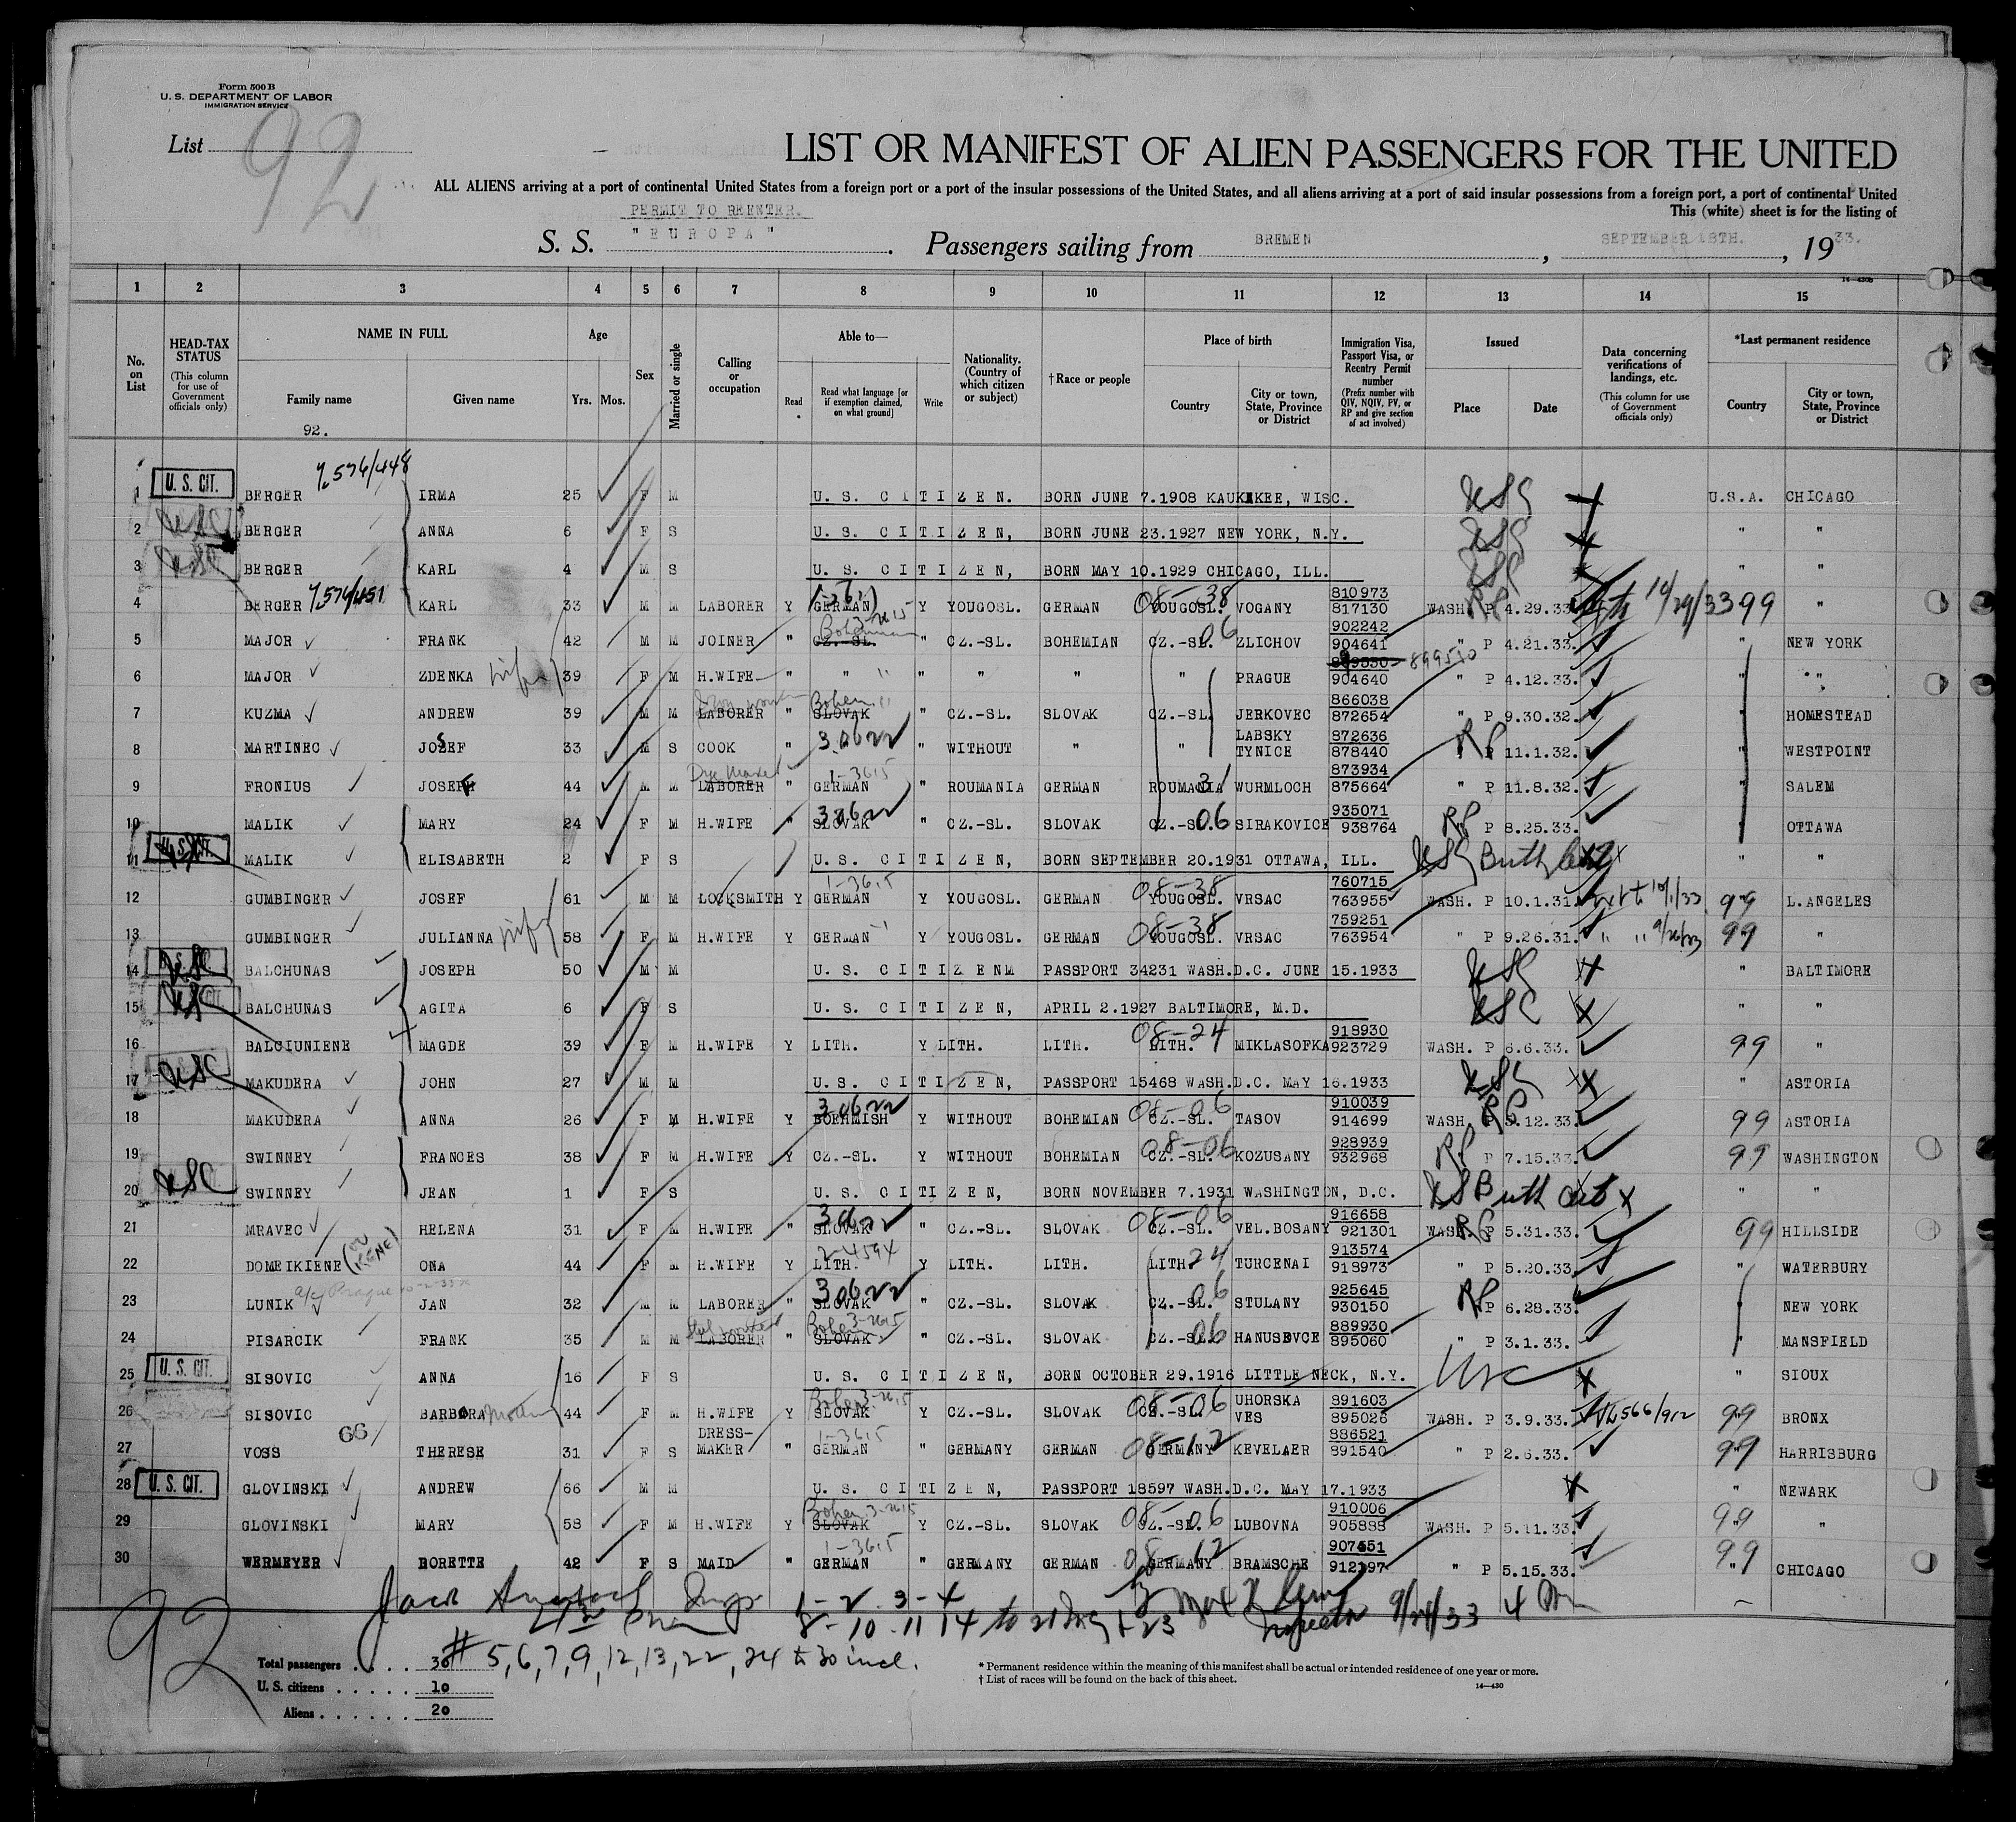 Form 500 B
U. S. DEPARTMENT OF LABOR
IMMIGRATION SERVICE
List 92
LIST OR MANIFEST OF ALIEN PASSENGERS FOR THE UNITED
ALL ALIENS arriving at a port of continental United States from a foreign port or a port of the insular possessions of the United States, and all aliens arriving at a port of said insular possessions from a foreign port, a port of continental United
This (white) sheet is for the listing of
PERMIT TO REENTER.
S. S. "EUROPA". Passengers sailing from BREMEN, SEPTEMBER 18TH., 1933.
14-430b
1 2 3 4 5 6 7 8 9 10 11 12 13 14 15
No. on List
HEAD-TAX STATUS (This column for use of Government officials only)
NAME IN FULL
Family name
Given name
92.
Age
Yrs. Mos.
Sex
Married or single
Calling or occupation
Able to—
Read
Read what language [or if exemption claimed, on what ground]
Write
Nationality. (Country of which citizen or subject)
†Race or people
Place of birth
Country
City or town, State, Province or District
Immigration Visa, Passport Visa, or Reentry Permit number (Prefix number with QIV, NQIV, PV, or RP and give section of act involved)
Issued
Place
Date
Data concerning verifications of landings, etc. (This column for use of Government officials only)
*Last permanent residence
Country
City or town, State, Province or District
7.576/448
1 U. S. CIT. BERGER IRMA 25 F M U. S. CITIZEN. BORN JUNE 7.1908 KAUKAKEE, WISC. USC U.S.A. CHICAGO
2 USC BERGER ANNA 6 F S U. S. CITIZEN, BORN JUNE 23.1927 NEW YORK, N.Y. USC " "
3 USC BERGER KARL 4 M S U. S. CITIZEN, BORN MAY 10.1929 CHICAGO, ILL. USC " "
4 BERGER 7.576/451 KARL 33 M M LABORER Y GERMAN Y YOUGOSL. GERMAN 08-38 YOUGOSL. VOGANY 810973 817130 WASH. RP P 4.29.33. 10/29/33 99 "
5 MAJOR FRANK 42 M M JOINER " CZ.-SL. Bohemian 3-2615 " CZ.-SL. BOHEMIAN CZ.-SL. 06 ZLICHOV 902242 904641 " P 4.21.33. " NEW YORK
6 MAJOR ZDENKA wife 39 F M H.WIFE " " " " " " PRAGUE 899550 899510 904640 " P 4.12.33. " "
7 KUZMA ANDREW 39 M M LABORER " SLOVAK Bohem. " CZ.-SL. SLOVAK CZ.-SL. JERKOVEC 866038 872654 " P 9.30.32. " HOMESTEAD
8 MARTINEC JOSEF 33 M S COOK " 30622 " WITHOUT " " LABSKY TYNICE 872636 878440 " RP P 11.1.32. " WESTPOINT
9 FRONIUS JOSEPH 44 M M LABORER " GERMAN 1-3615 " ROUMANIA GERMAN ROUMANIA 31 WURMLOCH 873934 875664 " P 11.8.32. " SALEM
10 MALIK MARY 24 F M H.WIFE " SLOVAK 30622 " CZ.-SL. SLOVAK CZ.-SL. 06 SIRAKOVICE 935071 938764 RP P 8.25.33. OTTAWA
11 U. S. CIT. MALIK ELISABETH 2 F S U. S. CITIZEN, BORN SEPTEMBER 20.1931 OTTAWA, ILL. USC Birth cert X " "
12 GUMBINGER JOSEF 61 M M LOCKSMITH Y GERMAN 1-3615 Y YOUGOSL. GERMAN 08-38 YOUGOSL. VRSAC 760715 763955 WASH. P 10.1.31. ext to 10/1/33 99 L.ANGELES
13 GUMBINGER JULIANNA wife 58 F M H.WIFE Y GERMAN Y YOUGOSL. GERMAN 08-38 YOUGOSL. VRSAC 759251 763954 " P 9.26.31. " " 9/26/33 99 "
14 USC BALCHUNAS JOSEPH 50 M M U. S. CITIZENM PASSPORT 34231 WASH.D.C. JUNE 15.1933 USC X " BALTIMORE
15 USC BALCHUNAS AGITA 6 F S U. S. CITIZEN, APRIL 2.1927 BALTIMORE, M.D. USC X " "
16 BALCIUNIENE MAGDE 39 F M H.WIFE Y LITH. Y LITH. LITH. 08-24 LITH. MIKLASOFKA 918930 923729 WASH. P 6.6.33. 99 "
17 USC MAKUDERA JOHN 27 M M U. S. CITIZEN, PASSPORT 15468 WASH.D.C. MAY 16.1933 USC X " ASTORIA
18 MAKUDERA ANNA 26 F M H.WIFE Y BOEHMISH 30622 Y WITHOUT BOHEMIAN 08-06 CZ.-SL. TASOV 910039 914699 WASH. RP P 5.12.33. 99 ASTORIA
19 SWINNEY FRANCES 38 F M H.WIFE Y CZ.-SL. Y WITHOUT BOHEMIAN 08-06 CZ.-SL. KOZUSANY 928939 932968 RP P 7.15.33. 99 WASHINGTON
20 USC SWINNEY JEAN 1 F S U. S. CITIZEN, BORN NOVEMBER 7.1931 WASHINGTON, D.C. USC Birth cert X " "
21 MRAVEC HELENA 31 F M H.WIFE " SLOVAK 30622 " CZ.-SL. SLOVAK 08-06 CZ.-SL. VEL.BOSANY 916658 921301 WASH. RP P 5.31.33. 99 HILLSIDE
22 DOMEIKIENE ONA 44 F M H.WIFE Y LITH. Y LITH. LITH. LITH. 24 TURCENAI 913574 918973 " P 5.20.33. " WATERBURY
23 LUNIK JAN 32 M M LABORER " SLOVAK 30622 " CZ.-SL. SLOVAK CZ.-SL. 06 STULANY 925645 930150 RP P 6.28.33. " NEW YORK
24 PISARCIK FRANK 35 M M LABORER " SLOVAK Bohem 3-2615 " CZ.-SL. SLOVAK CZ.-SL. 06 HANUSOVCE 889930 895060 " P 3.1.33. " MANSFIELD
25 U. S. CIT. SISOVIC ANNA 16 F S U. S. CITIZEN, BORN OCTOBER 29.1916 LITTLE NECK, N.Y. USC X " SIOUX
26 SISOVIC BARBORA mother 44 F M H.WIFE Y SLOVAK Bohem 3-2615 Y CZ.-SL. SLOVAK 08-06 CZ.-SL. UHORSKA VES 891603 895026 WASH. P 3.9.33. 566/912 99 BRONX
27 VOSS 66/ THERESE 31 F S DRESS-MAKER " GERMAN 1-3615 " GERMANY GERMAN 08-12 GERMANY KEVELAER 886521 891540 " P 2.6.33. 99 HARRISBURG
28 U. S. CIT. GLOVINSKI ANDREW 66 M M U. S. CITIZEN, PASSPORT 18597 WASH.D.C. MAY 17.1933 X " NEWARK
29 GLOVINSKI MARY 58 F M H.WIFE Y SLOVAK Bohem 3-2615 Y CZ.-SL. SLOVAK 08-06 CZ.-SL. LUBOVNA 910006 905888 WASH. P 5.11.33. 99 "
30 WERMEYER DORETTE 42 F S MAID " GERMAN 1-3615 " GERMANY GERMAN 08-12 GERMANY BRAMSCHE 907651 912197 " P 5.15.33. 99 CHICAGO
1-2 3-4
8-10-11 14 to 21 incl + 23 Inspector 9/24/33
92
# 5,6,7,9,12,13,22,24 to 30 incl.
Total passengers . . . . 30
U. S. citizens . . . . . 10
Aliens . . . . . . 20
* Permanent residence within the meaning of this manifest shall be actual or intended residence of one year or more.
† List of races will be found on the back of this sheet.
14—430